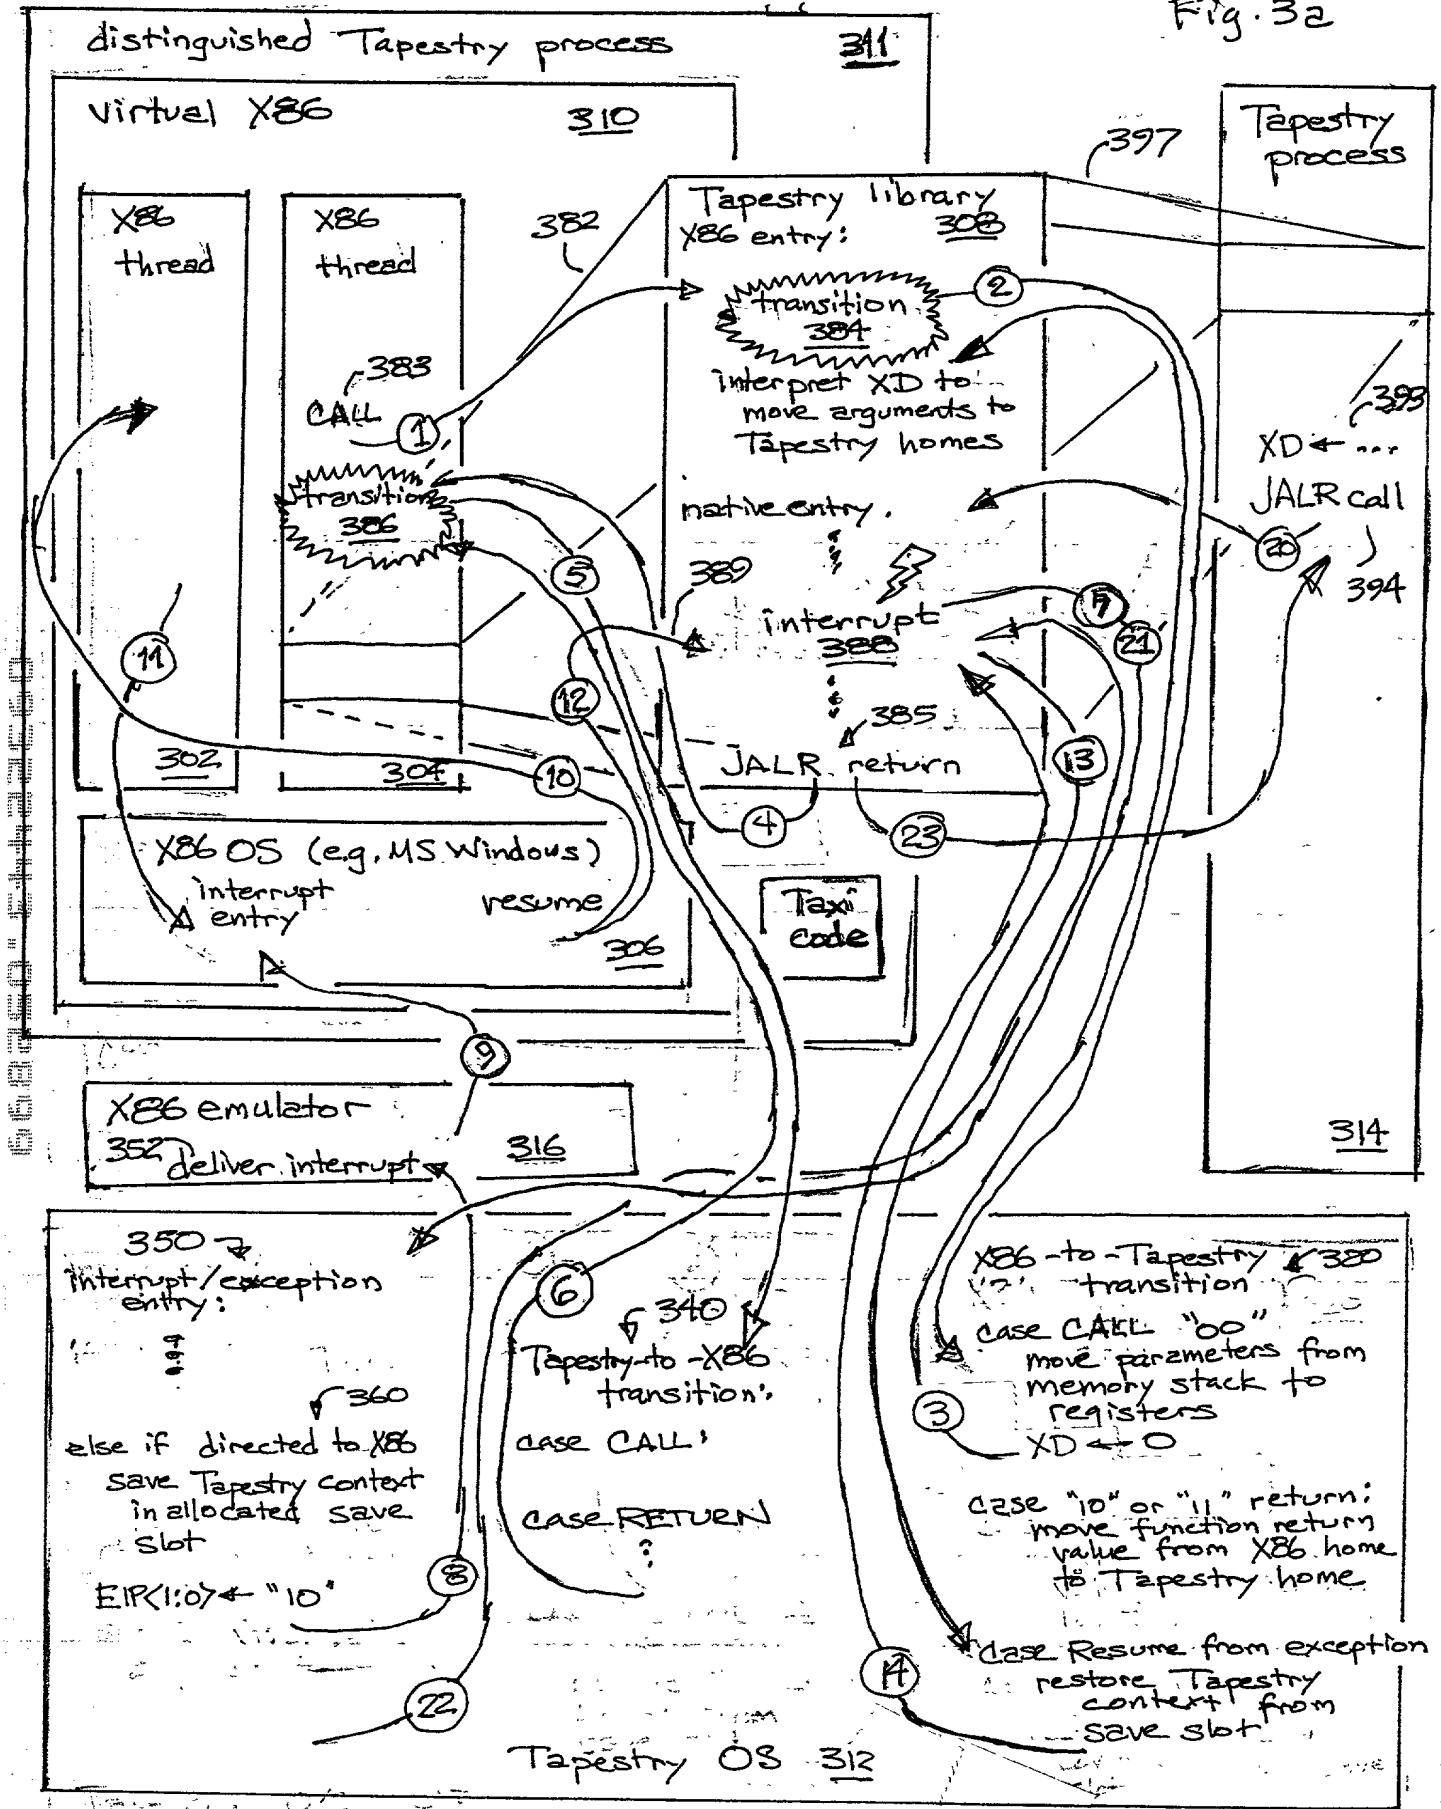 Fig. 3a
distinguished Tapestry process 311
virtual X86 310
X86
thread
302
X86
thread
304
383
CALL
1
transition
386
382
397
Tapestry library
X86 entry: 308
transition
384
2
interpret XD to
move arguments to
Tapestry homes
native entry.
389
interrupt
388
385
JALR return
5
12
10
11
4
23
7
21
13
20
Tapestry
process
393
XD ← ...
JALR call
394
314
X86 OS (e.g. MS Windows)
interrupt
entry
resume
306
Taxi
code
9
X86 emulator
352 deliver interrupt
316
350
interrupt/exception
entry:
360
else if directed to X86
save Tapestry context
in allocated save
slot
EIP<1:0> ← "10"
8
22
6
340
Tapestry-to-X86
transition:
case CALL:
case RETURN
X86-to-Tapestry 380
transition
case CALL "00"
move parameters from
memory stack to
registers
3
XD ← 0
case "10" or "11" return:
move function return
value from X86 home
to Tapestry home
case Resume from exception
restore Tapestry
context from
save slot
14
Tapestry OS 312